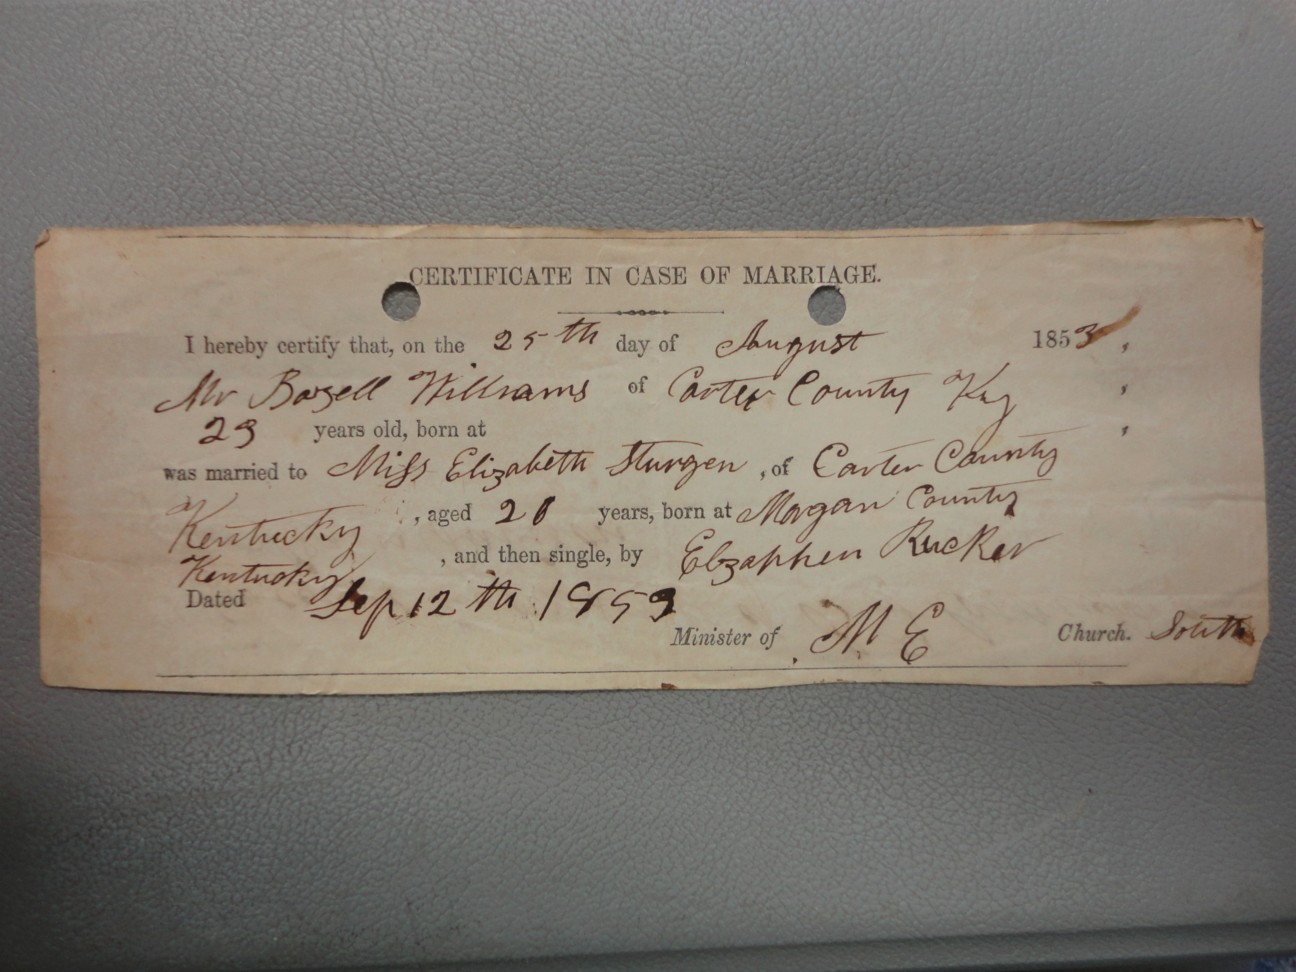 CERTIFICATE IN CASE OF MARRIAGE.
I hereby certify that, on the 25th day of August 1853,
Mr Bazell Williams of Carter County Ky,
23 years old, born at ,
was married to Miss Elizabeth Sturgen, of Carter County
Kentucky, aged 20 years, born at Morgan County
Kentucky, and then single, by Elzaphen Rucker
Dated Sep 12th 1853
Minister of M E Church. South